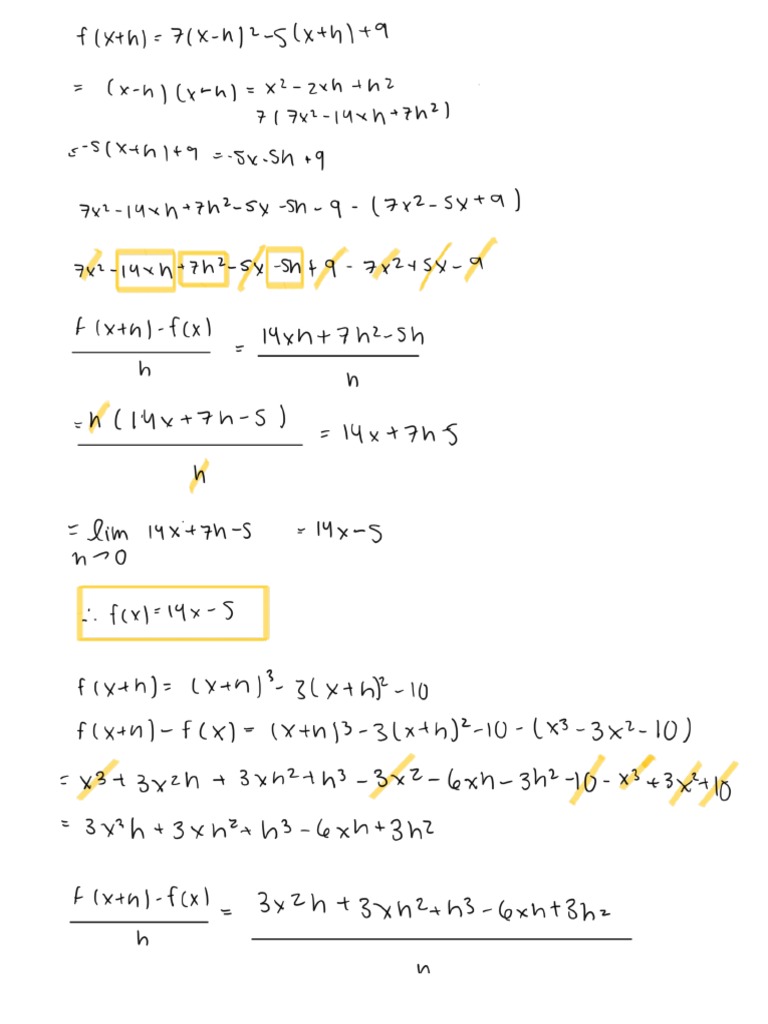 f(x+h) = 7(x-h)² - 5(x+h) + 9
= (x-h)(x-h) = x² - 2xh + h²
7(7x² - 14xh + 7h²)
= -5(x+h) + 9 = -5x - 5h + 9
7x² - 14xh + 7h² - 5x - 5h - 9 - (7x² - 5x + 9)
7x² - 14xh + 7h² - 5x - 5h + 9 - 7x² + 5x - 9
f(x+h) - f(x) / h = 14xh + 7h² - 5h / h
= h(14x + 7h - 5) / h = 14x + 7h 5
= lim h→0 14x + 7h - 5 = 14x - 5
∴ f(x) = 14x - 5
f(x+h) = (x+h)³ - 3(x+h)² - 10
f(x+h) - f(x) = (x+h)³ - 3(x+h)² - 10 - (x³ - 3x² - 10)
= x³ + 3x²h + 3xh² + h³ - 3x² - 6xh - 3h² - 10 - x³ + 3x² + 10
= 3x²h + 3xh² + h³ - 6xh + 3h²
f(x+h) - f(x) / h = 3x²h + 3xh² + h³ - 6xh + 3h² / h